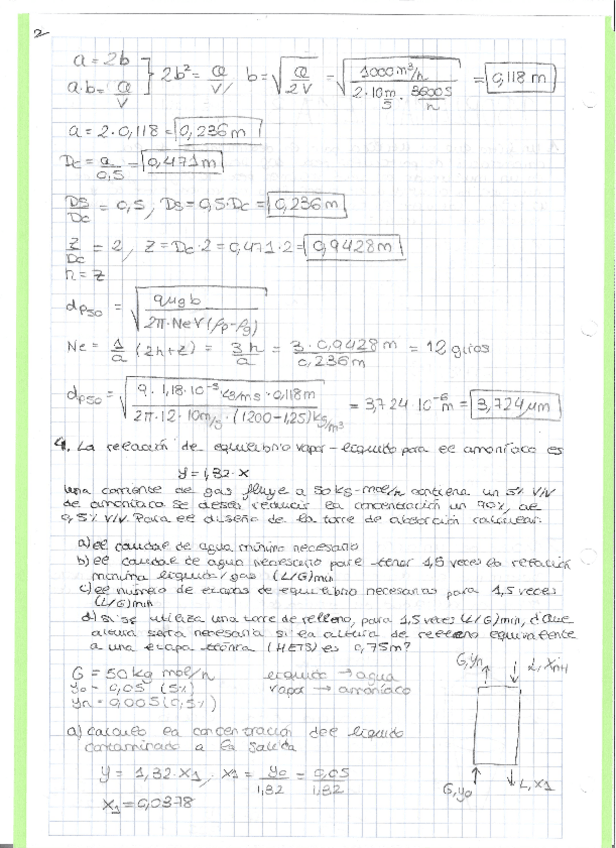 2
a = 2b
a·b = Q/V } 2b² = Q/V, b = √(Q/2V) = √(1000 m³/h / (2·10 m/s · 3600 s/h)) = 0,118 m
a = 2·0,118 = 0,236 m
Dc = a/0,5 = 0,471 m
Ds/Dc = 0,5, Ds = 0,5·Dc = 0,236 m
Z/Dc = 2, Z = Dc·2 = 0,471·2 = 0,9428 m
h = z
dp50 = √(9μgb / 2π·NeV(ρp-ρg))
Ne = 1/a (2h+z) = 3h/a = 3·0,9428 m / 0,236 m = 12 giros
dp50 = √(9·1,18·10⁻⁵ kg/ms · 0,118m / 2π·12·10m/s·(1200-1,25) kg/m³) = 3,724·10⁻⁶ m = 3,724 μm
4. La relación de equilibrio vapor-líquido para el amoníaco es
y = 1,32·x
Una corriente de gas fluye a 50 kg-mol/h contiene un 5% V/V
de amoníaco se desea reducir la concentración un 90%, al
0,5% V/V. Para el diseño de la torre de absorción calcular:
a) el caudal de agua mínimo necesario
b) el caudal de agua necesario para tener 1,5 veces la relación
mínima líquido/gas (L/G)min
c) el número de etapas de equilibrio necesarias para 1,5 veces
(L/G)min
d) si se utiliza una torre de relleno, para 1,5 veces (L/G)min, ¿qué
altura sería necesaria si la altura de relleno equivalente
a una etapa teórica (HETS) es 0,75m?
G = 50 kg mol/h líquido → agua
y0 = 0,05 (5%) vapor → amoníaco
yn = 0,005 (0,5%)
G, yn L, Xn+1
a) calculo la concentración del líquido
contaminado a la salida
y = 1,32·X1, X1 = y0/1,32 = 0,05/1,32
G, y0 L, X1
X1 = 0,0378